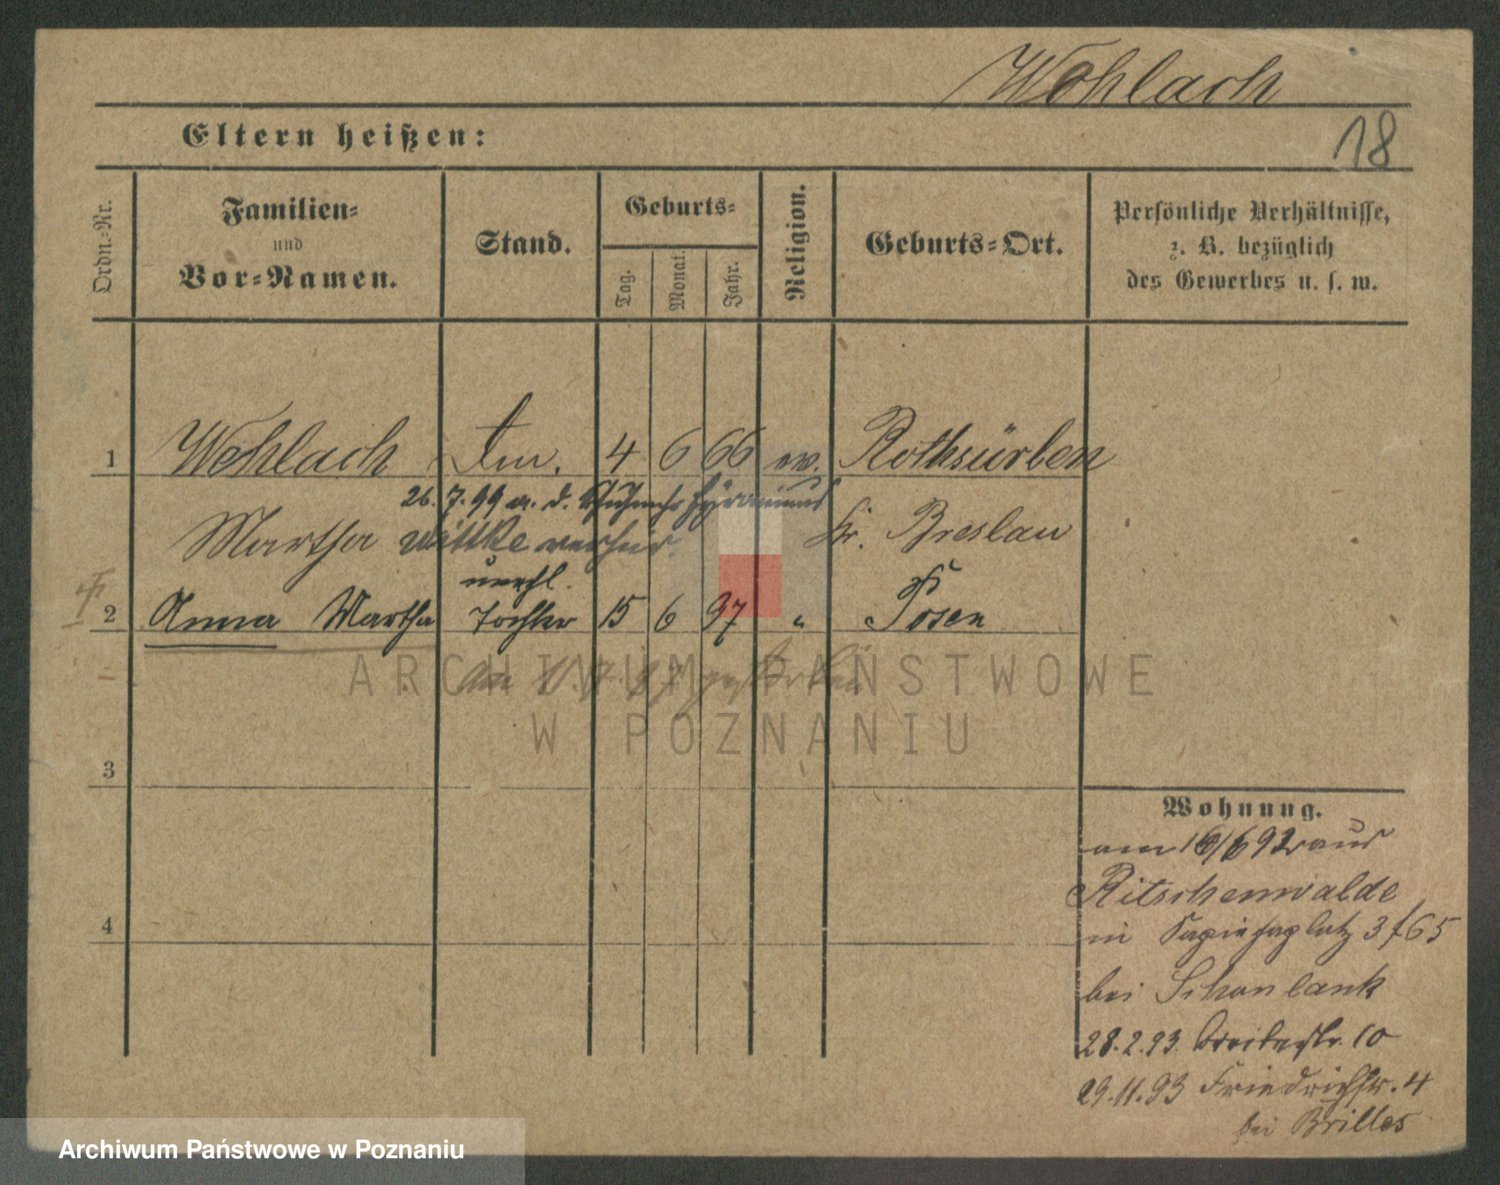 Wehlach
18
Eltern heißen:
Ordn.-Nr.
Familien-
und
Vor-Namen.
Stand.
Geburts-
Tag.
Monat.
Jahr.
Religion.
Geburts-Ort.
Persönliche Verhältnisse,
z. B. bezüglich
des Gewerbes u. s. w.
1 Wehlach 4 6 66 ev. Rothsürben
26. 7. 99 m. d.
Martha Wittke verheir. Kr. Breslau
unehl.
2 Anna Martha Tochter 15 6 97 " Posen
gestorben
ARCHIWUM PAŃSTWOWE
W POZNANIU
3
Wohnung.
am 16/6 92 aus
Ritschenwalde
4
in Sapiehaplatz 3 f 65
bei Schonlank
28.2.93. Breitestr. 10
29.11.93 Friedrichstr. 4
bei Brilles
Archiwum Państwowe w Poznaniu